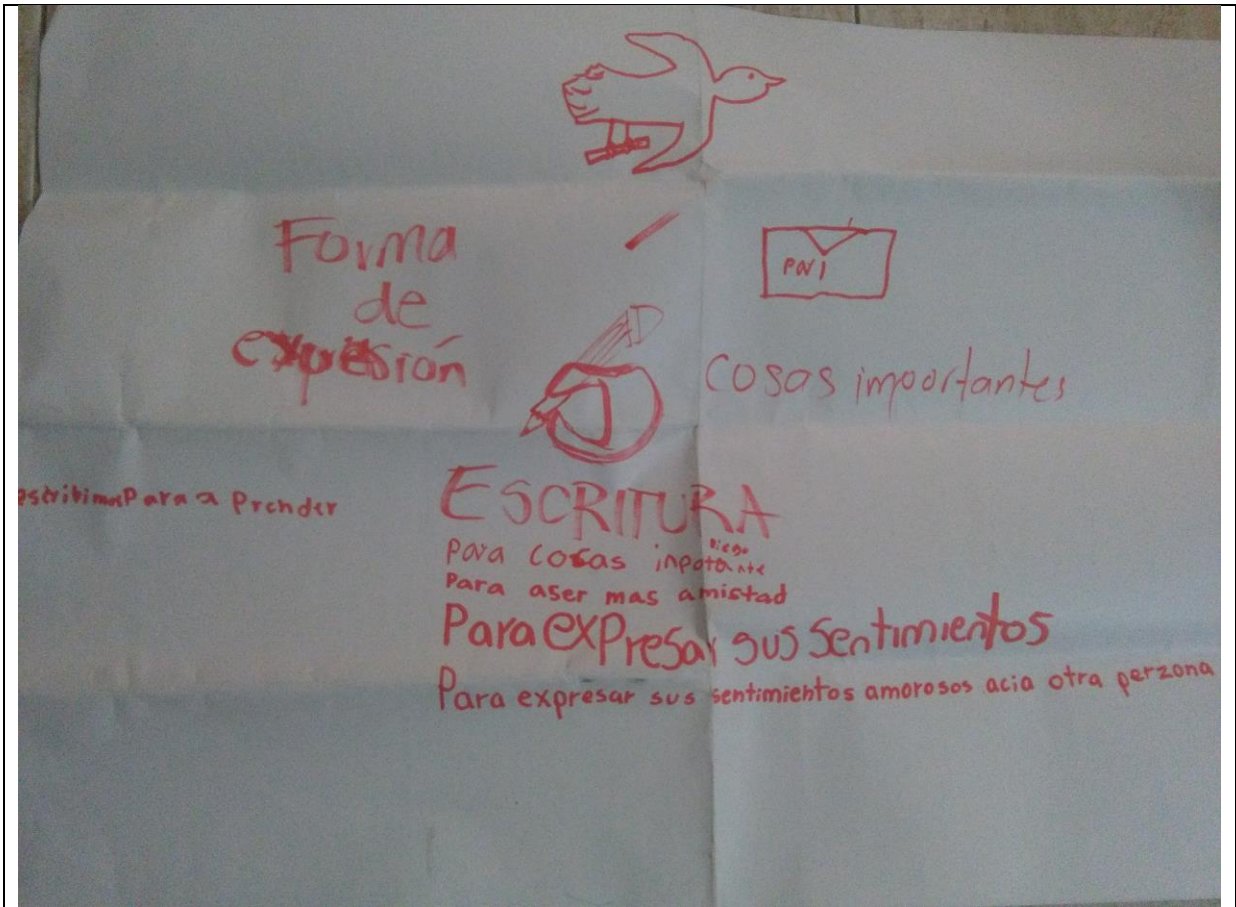 Forma
de
expresión
cosas importantes
escribimos Para a Prender
ESCRITURA
Diego
Para cosas inpotante
Para aser mas amistad
Para exPresar sus sentimientos
Para expresar sus sentimientos amorosos acia otra perzona